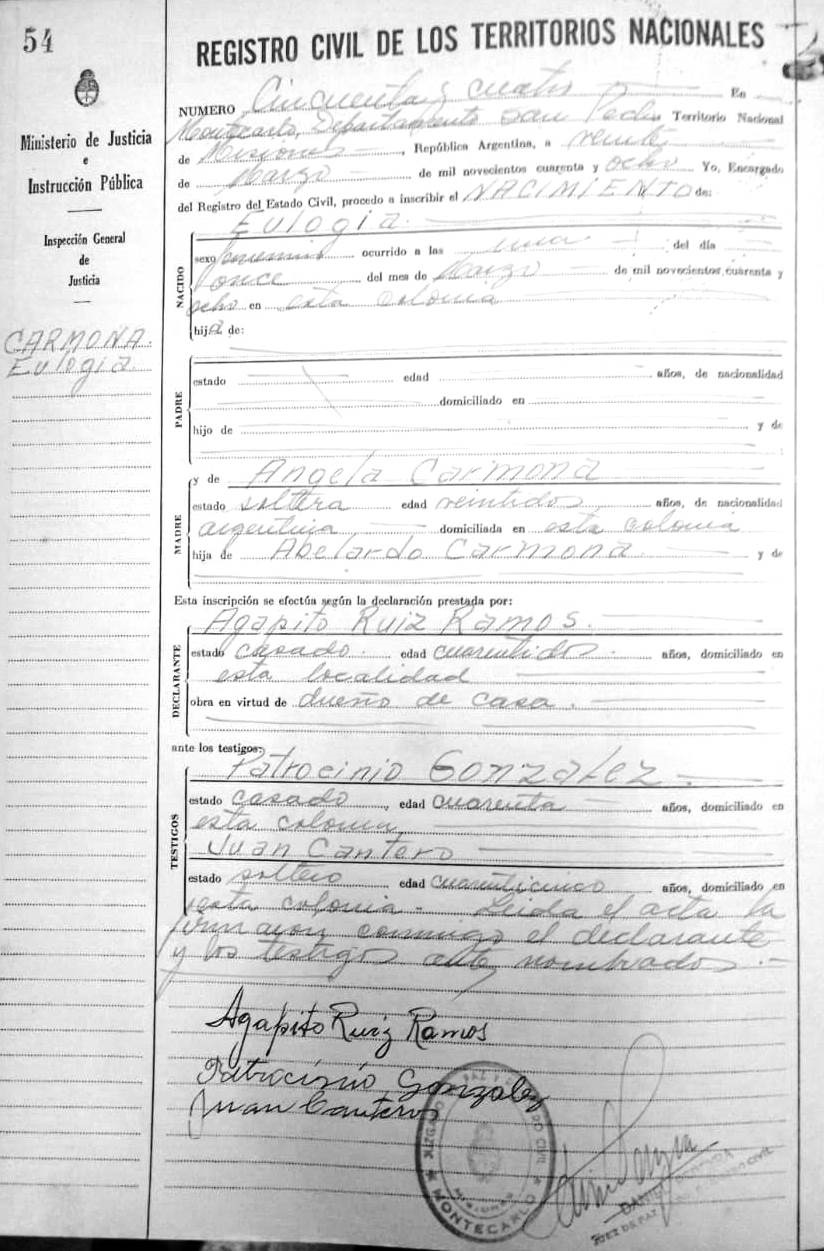 54
REGISTRO CIVIL DE LOS TERRITORIOS NACIONALES
Ministerio de Justicia
e
Instrucción Pública
Inspección General
de
Justicia
CARMONA.
Eulogia
NUMERO Cincuenta y cuatro En
Montecarlo, Departamento San Pedro Territorio Nacional
de Misiones, República Argentina, a veinte
de Marzo de mil novecientos cuarenta y ocho Yo, Encargado
del Registro del Estado Civil, procedo a inscribir el NACIMIENTO de:
Eulogia.
NACIDO
sexo ocurrido a las una del día
once del mes de Marzo de mil novecientos cuarenta y
ocho en esta colonia
hija de:
PADRE
estado edad años, de nacionalidad
domiciliado en
hijo de y de
MADRE
y de Angela Carmona
estado soltera edad veintidos años, de nacionalidad
argentina domiciliada en esta colonia
hija de Abelardo Carmona y de
Esta inscripción se efectúa según la declaración prestada por:
DECLARANTE
Agapito Ruiz Ramos.
estado casado. edad cuarentidos. años, domiciliado en
esta localidad
obra en virtud de dueño de casa.
ante los testigos:
TESTIGOS
Patrocinio Gonzalez
estado casado, edad cuarenta años, domiciliado en
esta colonia,
Juan Cantero
estado soltero edad cuarenticinco años, domiciliado en
esta colonia. Leida el acta la
firmaron conmigo el declarante
y los testigos ante nombrados.-
Agapito Ruiz Ramos
Patrocinio Gonzalez
Juan Canteros
JUZGADO PAZ CIVIL
MISIONES
MONTECARLO
JUEZ DE PAZ CIVIL